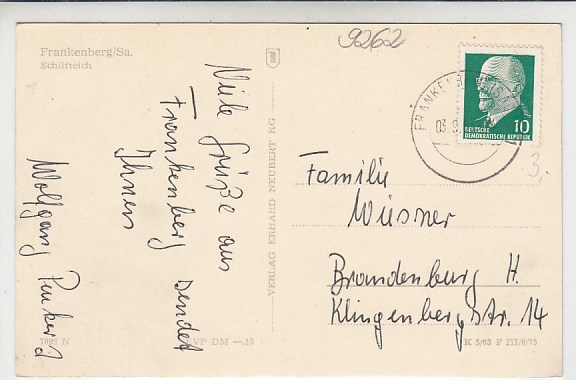 Frankenberg/Sa.
Schilfteich
9262
Viele Grüße aus
Frankenberg sendet
Ihnen
Wolfgang
FRANKENBERG
03.9.
10
DEUTSCHE
DEMOKRATISCHE REPUBLIK
3,-
Familie
Wüsner
Brandenburg H.
Klingenbergstr. 14
VERLAG ERHARD NEUBERT KG
N
EVP DM —.15
K 5/63 F III/6/75